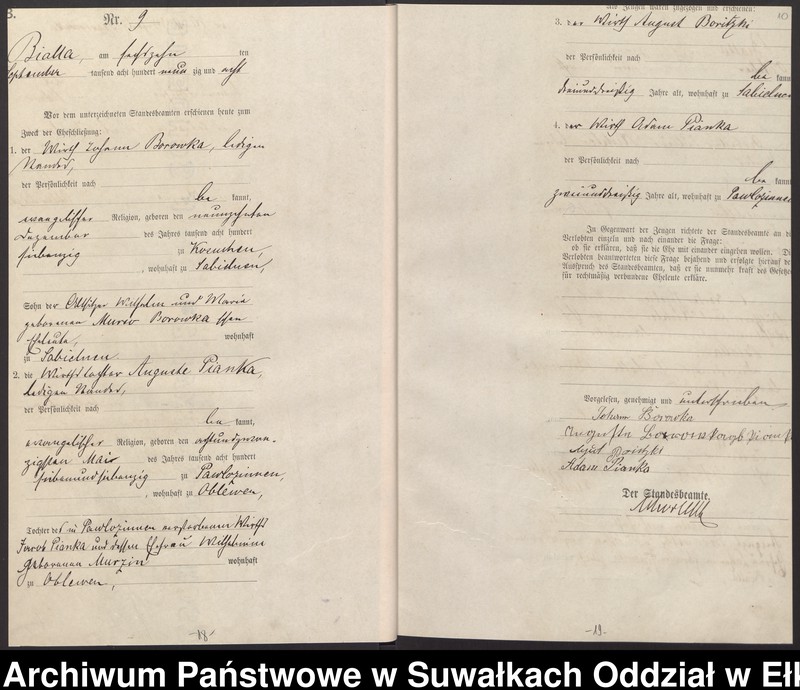 B.
Nr. 9
Bialla, am sechszehn ten
September tausend acht hundert neun zig und acht
Vor dem unterzeichneten Standesbeamten erschienen heute zum
Zweck der Eheschließung:
1. der Wirth Johann Borowka, ledigen
Standes,
der Persönlichkeit nach
be kannt,
evangelischer Religion, geboren den neunzehnten
Dezember des Jahres tausend acht hundert
siebenzig zu
, wohnhaft zu Sabielnen,
Sohn der Altsitzer Wilhelm und Marie
geborenen Borowka schen
Eheleute, wohnhaft
zu Sabielnen
2. die Wirthstochter Auguste Pianka,
ledigen Standes,
der Persönlichkeit nach
be kannt,
evangelischer Religion, geboren den achtundzwan-
zigsten Mai des Jahres tausend acht hundert
siebenundsiebenzig zu Pawlozinnen,
, wohnhaft zu Oblewen,
Tochter des in Pawlozinnen verstorbenen Wirths
Jacob Pianka und dessen Ehefrau Wilhelmine
geborenen Murzin wohnhaft
zu Oblewen,
-18-
10
Als Zeugen waren zugezogen und erschienen:
3. der Wirth August Boritzki
der Persönlichkeit nach
be kannt
dreiunddreißig Jahre alt, wohnhaft zu Sabielnen
4. der Wirth Adam Pianka
der Persönlichkeit nach
be kannt
zweiunddreißig Jahre alt, wohnhaft zu Pawlozinnen
In Gegenwart der Zeugen richtete der Standesbeamte an di
Verlobten einzeln und nach einander die Frage:
ob sie erklären, daß sie die Ehe mit einander eingehen wollen. Di
Verlobten beantworteten diese Frage bejahend und erfolgte hierauf de
Ausspruch des Standesbeamten, daß er sie nunmehr kraft des Gesetze
für rechtmäßig verbundene Eheleute erkläre.
Vorgelesen, genehmigt und unterschrieben
Johann Borowka
Augusta
August Boritzki
Adam Pianka
Der Standesbeamte.
-19-
Archiwum Państwowe w Suwałkach Oddział w Ełk